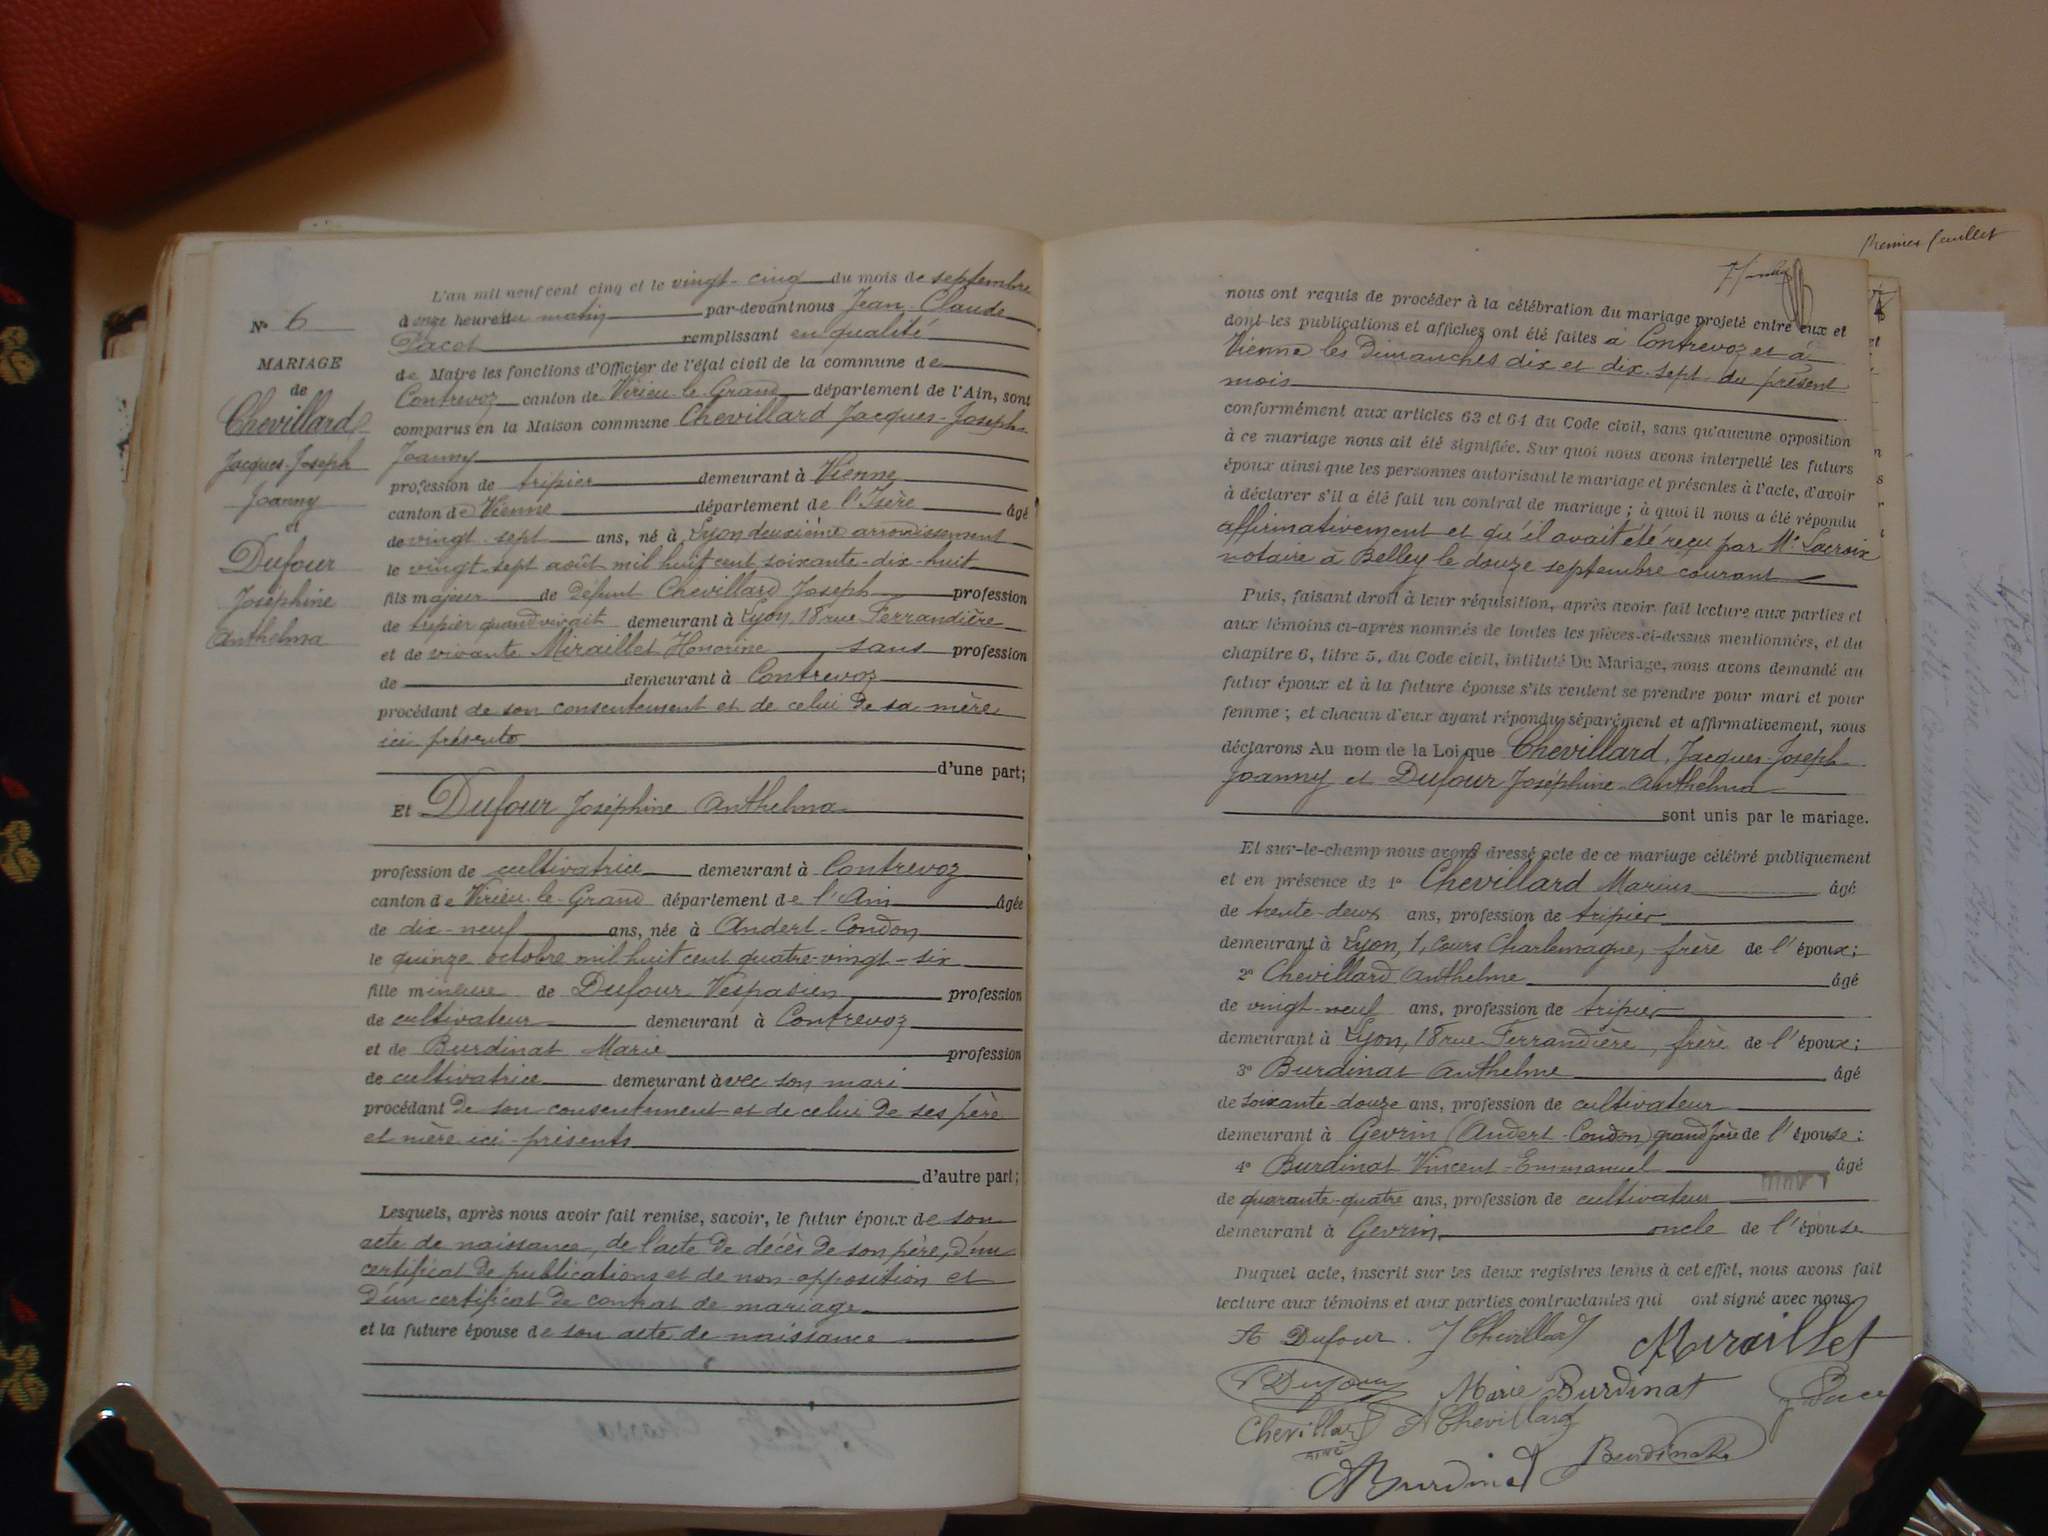 N° 6
MARIAGE
de
Chevillard
Jacques-Joseph
Joanny
et
Dufour
Joséphine
Anthelma
L'an mil neuf cent cinq et le vingt-cinq du mois de septembre
à onze heures du matin par-devant nous Jean Claude
Pacot remplissant en qualité
de Maire les fonctions d'Officier de l'état civil de la commune de
Contrevoz canton de Virieu-le-Grand département de l'Ain, sont
comparus en la Maison commune Chevillard Jacques-Joseph
Joanny
profession de tripier demeurant à Vienne
canton de Vienne département de l'Isère âgé
de vingt-sept ans, né à Lyon deuxième arrondissement
le vingt-sept août mil huit cent soixante-dix-huit
fils majeur de défunt Chevillard Joseph profession
de tripier quand vivait demeurant à Lyon, 18 rue Ferrandière
et de vivante Miraillet Honorine sans profession
de demeurant à Contrevoz
procédant de son consentement et de celui de sa mère
ici présente
d'une part;
Et Dufour Joséphine Anthelma
profession de cultivatrice demeurant à Contrevoz
canton de Virieu-le-Grand département de l'Ain Agée
de dix-neuf ans, née à Andert-Condon
le quinze octobre mil huit cent quatre-vingt-six
fille mineure de Dufour Vespasien profession
de cultivateur demeurant à Contrevoz
et de Burdinat Marie profession
de cultivatrice demeurant avec son mari
procédant de son consentement et de celui de ses père
et mère ici-présents
d'autre part;
Lesquels, après nous avoir fait remise, savoir, le futur époux de son
acte de naissance, de l'acte de décès de son père, d'un
certificat de publications et de non-opposition et
d'un certificat de contrat de mariage
et la future épouse de son acte de naissance
nous ont requis de procéder à la célébration du mariage projeté entre eux et
dont les publications et affiches ont été faites à Contrevoz et à
Vienne les Dimanches dix et dix-sept du présent
mois
conformément aux articles 63 et 64 du Code civil, sans qu'aucune opposition
à ce mariage nous ait été signifiée. Sur quoi nous avons interpellé les futurs
époux ainsi que les personnes autorisant le mariage et présentes à l'acte, d'avoir
à déclarer s'il a été fait un contrat de mariage; à quoi il nous a été répondu
affirmativement et qu'il avait été reçu par Me Lacroix
notaire à Belley le douze septembre courant
Puis, faisant droit à leur réquisition, après avoir fait lecture aux parties et
aux témoins ci-après nommés de toutes les pièces-ci-dessus mentionnées, et du
chapitre 6, titre 5, du Code civil, intitulé Du Mariage, nous avons demandé au
futur époux et à la future épouse s'ils veulent se prendre pour mari et pour
femme; et chacun d'eux ayant répondu séparément et affirmativement, nous
déclarons Au nom de la Loi que Chevillard, Jacques-Joseph
Joanny et Dufour Joséphine-Anthelma
sont unis par le mariage.
Et sur-le-champ nous avons dressé acte de ce mariage célébré publiquement
et en présence de 1° Chevillard Marius âgé
de trente-deux ans, profession de tripier
demeurant à Lyon, 1, Cours Charlemagne, frère de l'époux;
2° Chevillard Anthelme âgé
de vingt-neuf ans, profession de tripier
demeurant à Lyon, 18 rue Ferrandière, frère de l'époux;
3° Burdinat Anthelme âgé
de soixante-douze ans, profession de cultivateur
demeurant à Gevrin (Andert-Condon) grand père de l'épouse;
4° Burdinat Vincent-Emmanuel âgé
de quarante-quatre ans, profession de cultivateur
demeurant à Gevrin oncle de l'épouse
Duquel acte, inscrit sur les deux registres tenus à cet effet, nous avons fait
lecture aux témoins et aux parties contractantes qui ont signé avec nous
A Dufour J Chevillard Miraillet
V Dufour Marie Burdinat
Chevillard A Chevillard
AINÉ
Burdinat
Burdinat
Premier feuillet